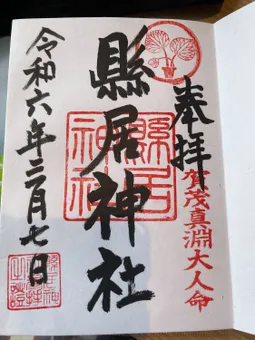 奉拝
賀茂真淵大人命
縣居神社
縣居神社
令和六年三月七日